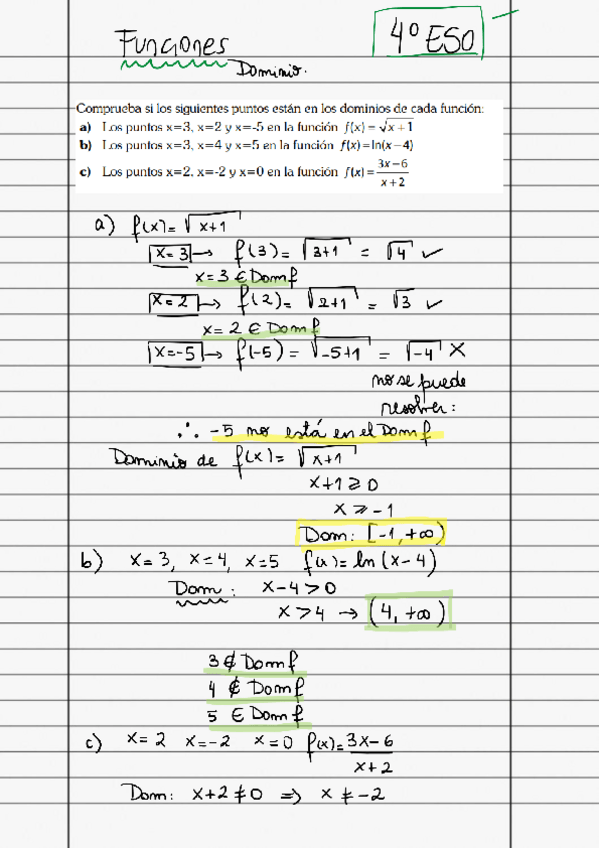 Funciones
4º ESO
Dominio.
Comprueba si los siguientes puntos están en los dominios de cada función:
a) Los puntos x=3, x=2 y x=-5 en la función f(x)=√x+1
b) Los puntos x=3, x=4 y x=5 en la función f(x)=ln(x-4)
c) Los puntos x=2, x=-2 y x=0 en la función f(x)= 3x-6
x+2
a) f(x)= √x+1
x=3 → f(3)= √3+1 = √4 ✓
x=3 ∈ Dom f
x=2 → f(2)= √2+1 = √3 ✓
x=2 ∈ Dom f
x=-5 → f(-5) = √-5+1 = √-4 X
no se puede
resolver:
∴ -5 no está en el Dom f
Dominio de f(x)= √x+1
x+1 ⩾ 0
x ⩾ -1
Dom: [-1, +∞)
b) x=3, x=4, x=5 f(x)= ln (x-4)
Dom: x-4>0
x>4 → (4, +∞)
3 ∉ Dom f
4 ∉ Dom f
5 ∈ Dom f
c) x=2 x=-2 x=0 f(x)= 3x-6
x+2
Dom: x+2≠0 ⇒ x ≠ -2